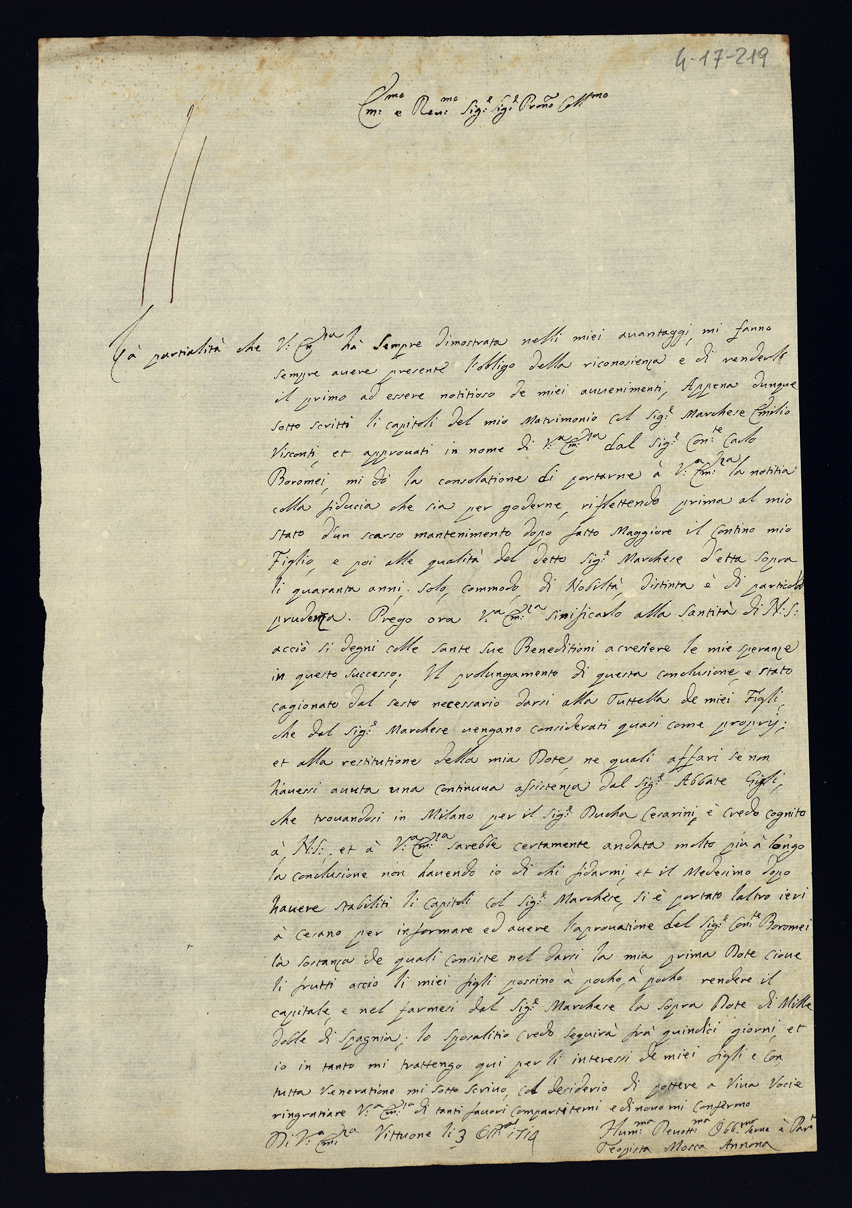 4-17-219
Em:mo e Reu:mo Sig:e Sig:e Prone Coll:mo
La partialità che V: Em:za hà sempre dimostrata nelli miei auantaggi, mi fanno
sempre auere presente l'obligo della riconosienza e di renderle
il primo ad essere notitioso de miei auuenimenti, Appena dunque
sotto scritti li capitoli del mio Matrimonio col Sig:e Marchese Emilio
Visconti, et approuati in nome di V:a Em:za dal Sig:e Con:te Carlo
Boromei, mi dò la consolatione di portarne à V:a Em:za la notitia
colla fiducia che sia per goderne, riflettendo prima al mio
stato d'un scarso mantenimento dopo fatto Maggiore il Contino mio
Figlio, e poi alle qualità del detto Sig:e Marchese d'etta sopra
li quaranta anni, solo, commodo, di Nobiltà, distinta è di particolar
prudenza. Prego ora V:a Em:za sinificarlo alla Santità di N:S:
acciò si degni colle sante sue Beneditioni acresiere le mie speranze
in questo successo; Il prolungamento di questa conclusione, e stato
cagionato dal sesto necessario darsi alla Tuttella de miei Figli,
che dal Sig:e Marchese uengano considerati quasi come proprij;
et alla restitutione della mia Dote, ne quali affari se non
hauessi auuta una continuua assistenza dal Sig:e Abbate Gigli,
che trouandosi in Milano per il Sig:e Ducha Cesarini, è credo cognito
à, N:S:, et à V:a Em:za sarebbe certamente andata molto più à longo
la conclusione non hauendo io di chi fidarmi, et il Medesimo dopo
hauere stabiliti li Capitoli col Sig:e Marchese, si è portato l'altro ieri
à Cesano per informare ed auere l'aprouatione del Sig:e Con:te Boromei
la sostanza de quali consiste nel darsi la mia prima Dote cioue
li frutti acciò li miei figli possino à pocho, à pocho rendere il
capitale, e nel farmesi dal Sig:e Marchese la sopra Dote di Mille
doble di Spagnia; lo sposalitio credo seguirà frà quindici giorni, et
io in tanto mi trattengo qui per li interessi de miei figli e con
tutta Veneratione mi sotto scriuo, col desiderio di pottere a Viua Vocie
ringratiare V:a Em:za di tanti fauori compartitemi e di nouo mi confermo
Di V:a Em:za Vittuone li 3
Hum:ma Deuott:ma Obb:ma Serua
Teopista Mosca Annona